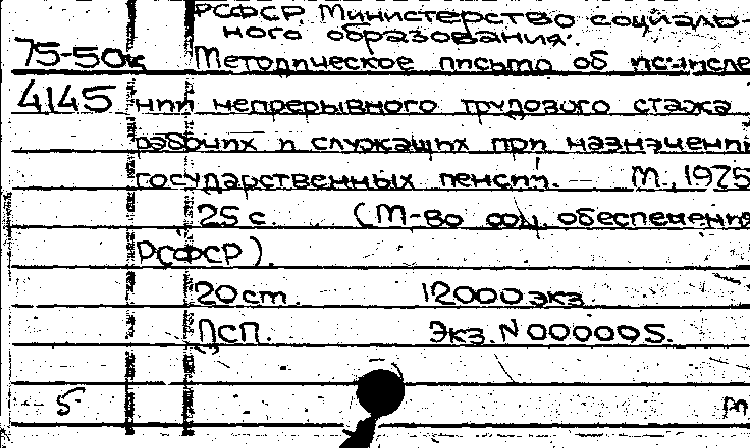 РСФСР. Министерство социаль-
ного образования.
75-50к Методическое письмо об исчисле
4145 нии непрерывного трудового стажа
рабочих и служащих при назначении
государственных пенсий. М., 1975
25 с. (М-во соц. обеспечения
РСФСР).
20 ст. 12000 экз.
ДСП. Экз. N 000005.
5